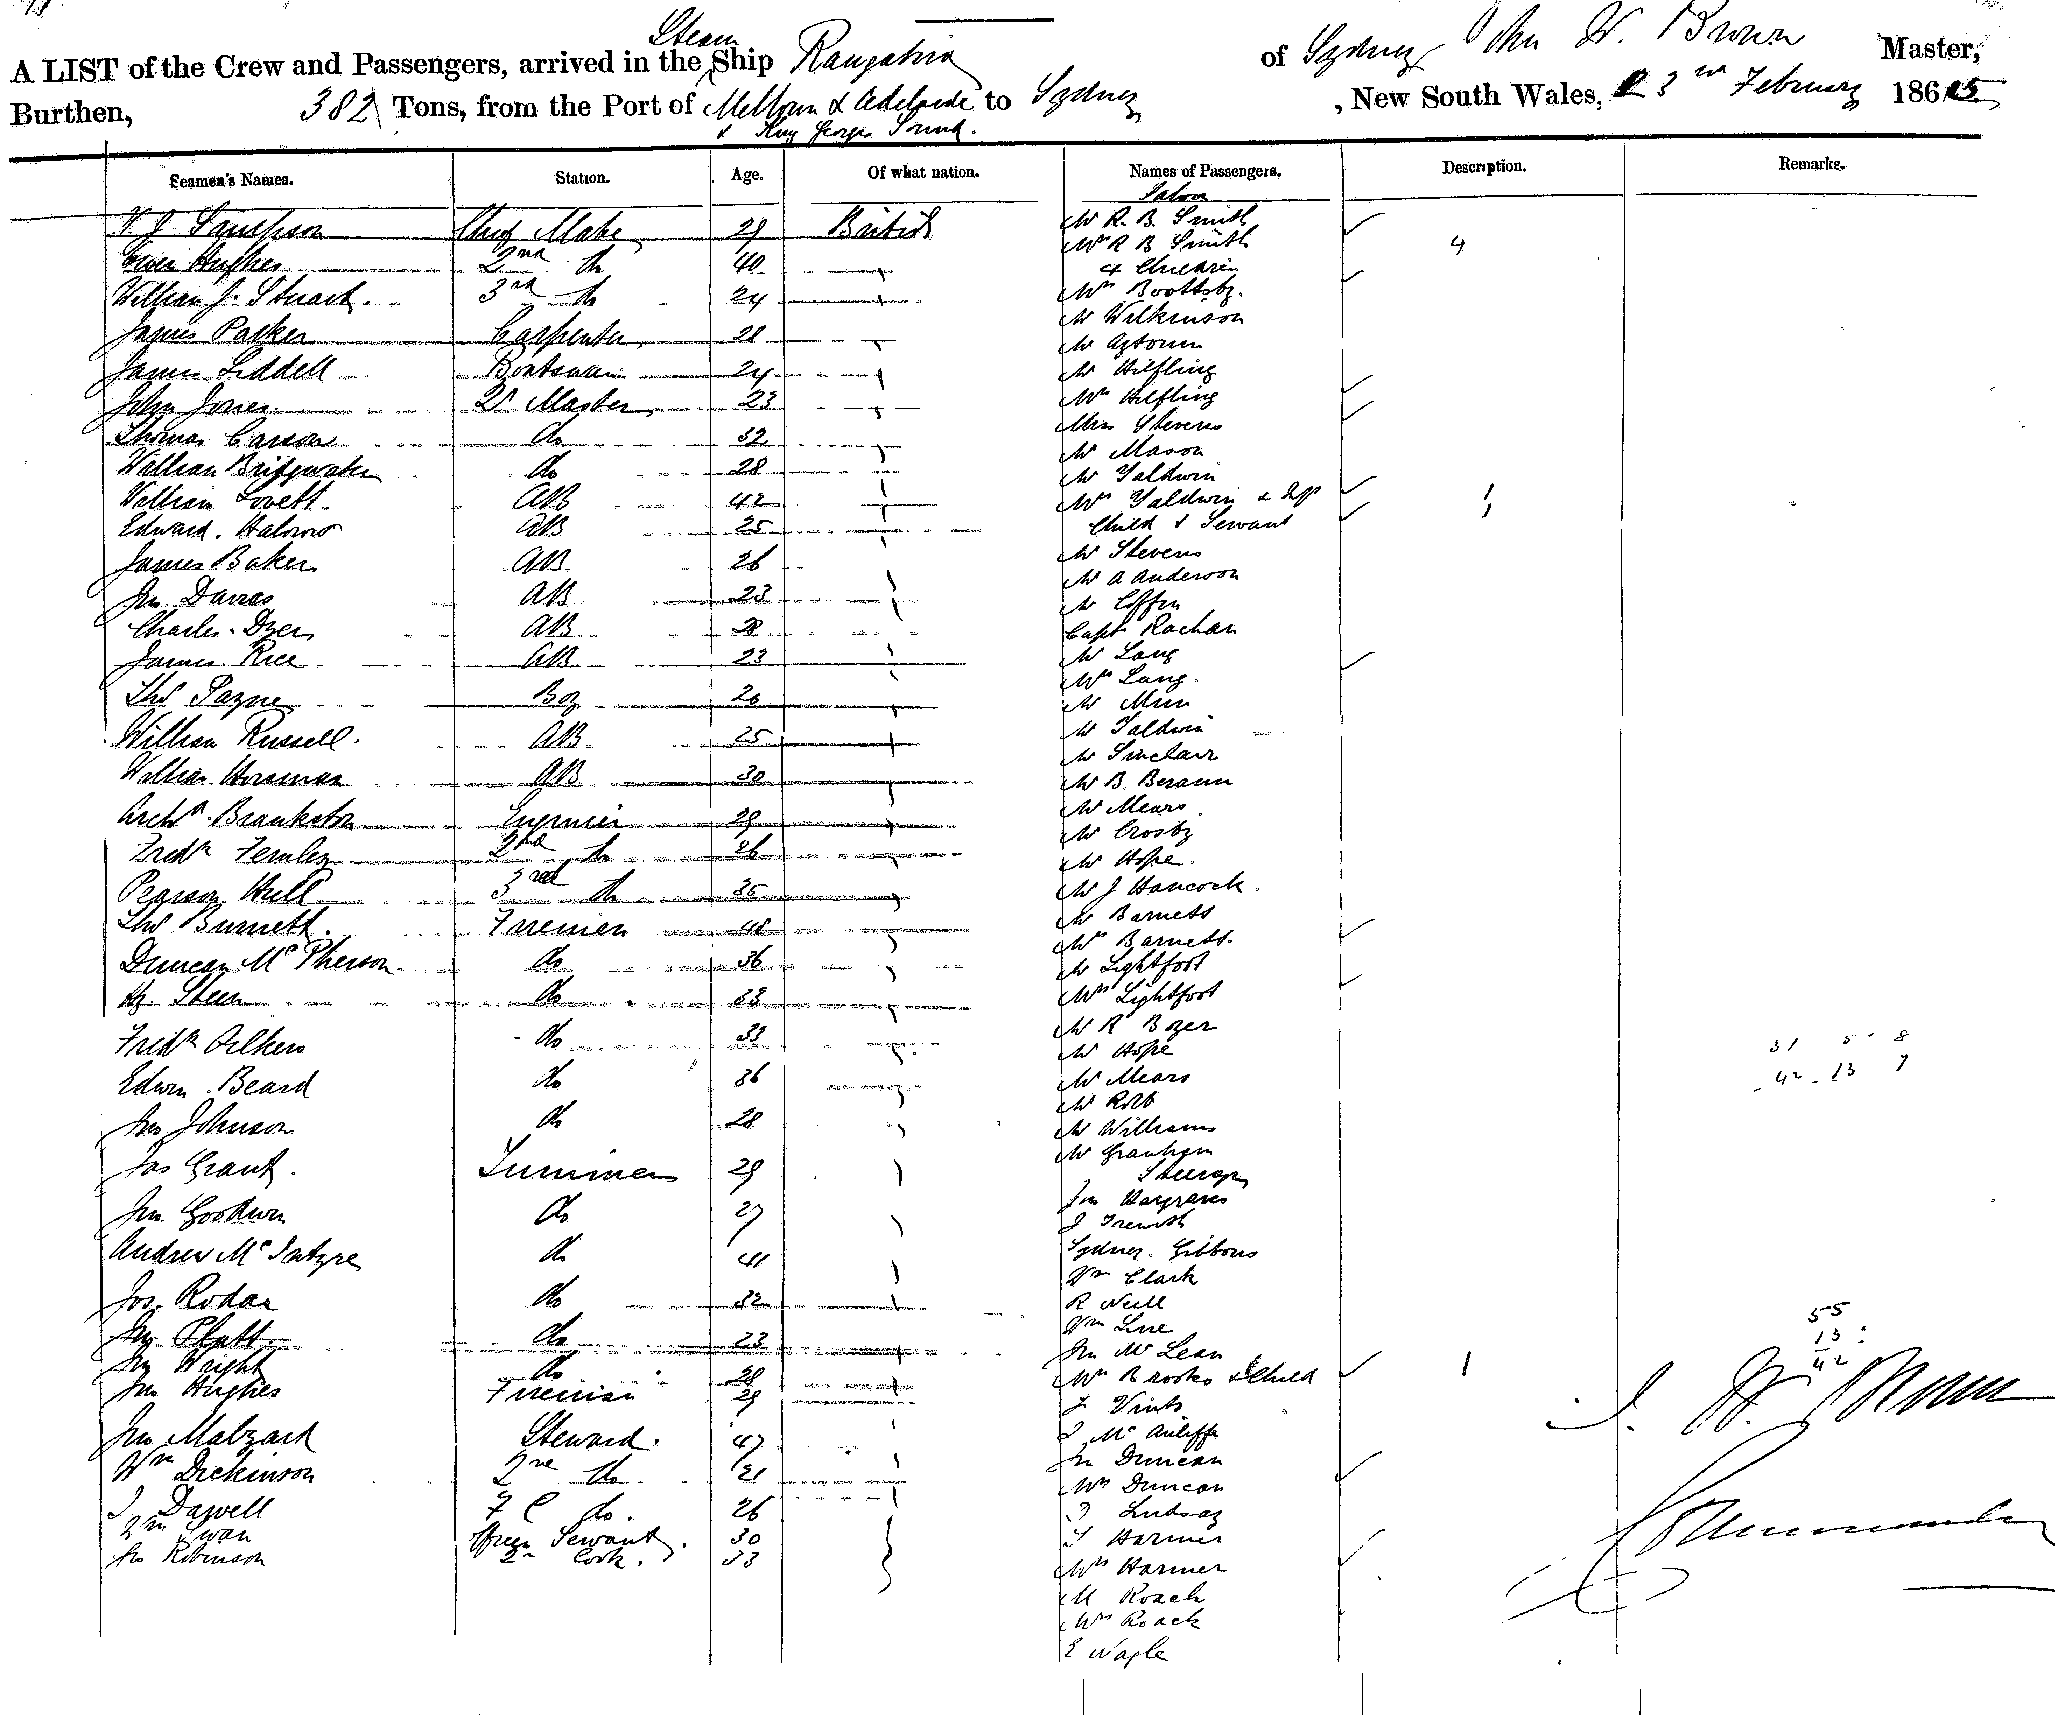 Steam
A LIST of the Crew and Passengers, arrived in the Ship Rangatira of Sydney, John W. Brown Master,
Burthen, 382 Tons, from the Port of Melbourn & Adelaide to Sydney, New South Wales, 3rd February 1865
& King Georges Sound.
Seamen's Names. Station. Age. Of what nation. Names of Passengers. Description. Remarks.
Saloon
Chief Mate 29 British Mr R. B. Smith
Mrs R B Smith 4
Owen Hughes 2nd do 40 4 Children
William J. Stuart. 3rd do 24 Mrs
Mr Wilkinson
James Parker Carpenter 28 Mr
James Liddell Boatswain 24 Mr Hilfling
John Jones Qr Master 23 Mrs Hilfling
Miss Stevens
Thomas Carson do 32 Mr Mason
William Bridgwater do 28 Mr Yaldwin
William Lovett. AB 42 Mrs Yaldwin & 1
Edward. AB 25 Child & Servant 1
James Baker AB 26 Mr Stevens
Mr A Anderson
Jno Davies AB 23 Mr Coffin
Charles Dyer AB Capt Rachan
James Rice AB 23 Mr Lang
Mrs Lang.
Thos Payne Boy 20 Mr
William Russell. AB 25 Mr Yaldwin
Mr Sinclair
William Horsman AB 30 Mr B.
Mr Mears
Archd Brankston Engineer 29 Mr Crosby
Fredk Fernley 2nd do 26 Mr Hope.
Pearson Hull 3rd do 35 Mr J Hancock.
Thos Burnett. Firemen 48 Mr Barnett
Mrs Barnett.
Duncan McPherson. do 36 Mr Lightfoot
Hy Steen do 33 Mrs Lightfoot
Mr R Boyer
Fredk Oilkers do 33 Mr Hope 31 5 8
Edwin Beard do 36 Mr Mears 42 13 7
Mr Robb
Jno Johnson do 28 Mr Williams
Mr Grantham
Jas Grant. Trimmer 29 Steerage
Jno Hargraves
Jno Goodwin do 27 J
Andrew McIntyre do 41 Sydney. Gibbons
Wm Clark
Jos. Rodan do 32 R Neill 55
Wm Line 13
Jno Platt. do 23 Jno McLean 42
Jno Wright do 28 Mrs Brooks & Child 1
Jno Hughes Fireman 29 J Vints
J. W. Brown
Jno Malzard Steward. 47 J McAuliffe
Jno Duncan
Wm Dickinson 2nd do 21 Mrs Duncan
J Dazvell F C do. 26 J Lindsay
Wm Swan Offrs Servant. 30 T Harmer
Jno Robinson 2nd Cook. 33 Mrs Harmer
M Roach
Mrs Roach
E Nagle